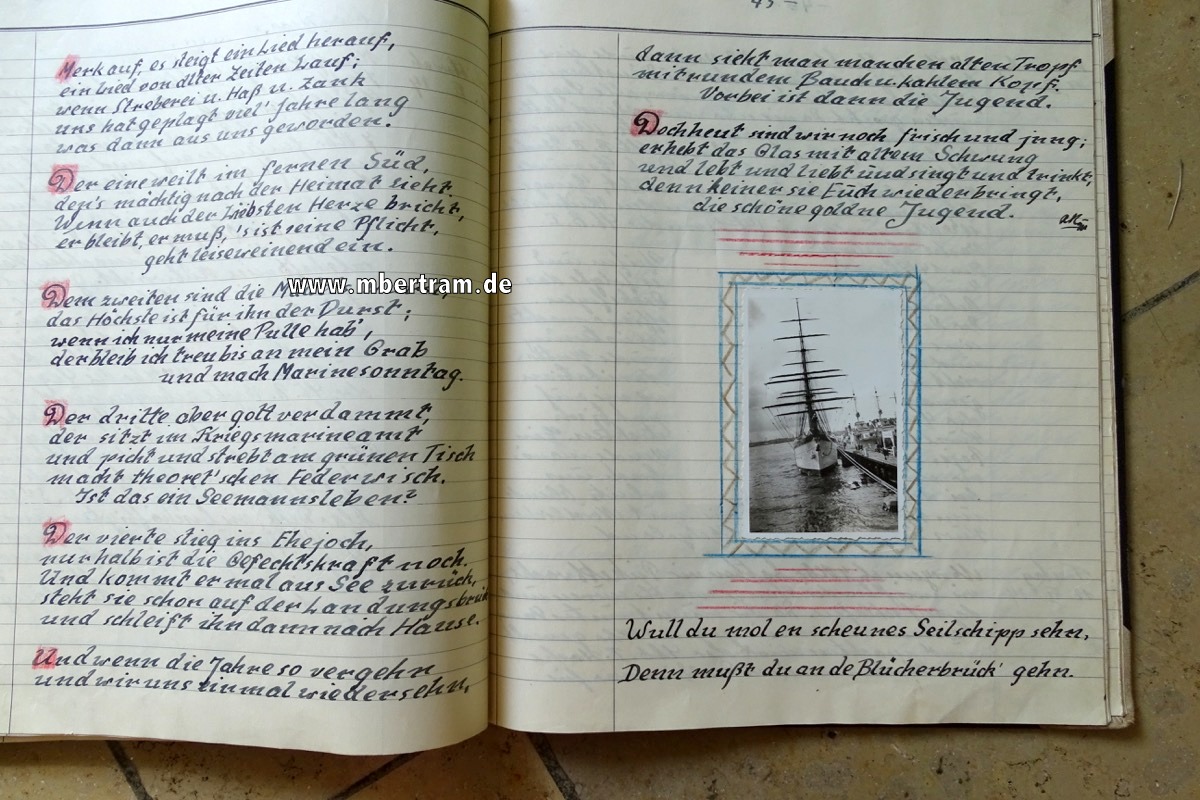 Merk auf, es steigt ein Lied herauf,
ein Lied von alter Zeiten Lauf;
wenn Streberei u. Haß u. Zank
uns hat geplagt viel' Jahre lang
was dann aus uns geworden.
Der eine weilt im fernen Süd,
den's mächtig nach der Heimat zieht.
Wenn auch der Liebsten Herze bricht,
er bleibt, er muß, 's ist seine Pflicht,
geht leise weinend ein.
Dem zweiten sind die
das Höchste ist für ihn der Durst;
wenn ich nur meine Pulle hab',
der bleib ich treu bis an mein Grab
und mach Marinesonntag.
Der dritte aber gottverdammt,
der sitzt im Kriegsmarineamt
und picht und strebt am grünen Tisch
macht theoret'schen Federwisch.
Ist das ein Seemannsleben?
Der vierte stieg ins Ehejoch,
nur halb ist die Gefechtskraft noch.
Und kommt er mal aus See zurück,
steht sie schon auf der Landungsbrück
und schleift ihn dann nach Hause.
Und wenn die Jahre so vergehn
und wir uns einmal wiedersehn,
www.mbertram.de
dann sieht man manchen alten Tropf
mit rundem Bauch u. kahlem Kopf.
Vorbei ist dann die Jugend.
Doch heut sind wir noch frisch und jung;
erhebt das Glas mit altem Schwung
und lebt und liebt und singt und trinkt,
denn keiner sie Euch wiederbringt,
die schöne goldne Jugend.
Wull du mol en scheunes Seilschipp sehn,
Denn mußt du an de Blücherbrück' gehn.